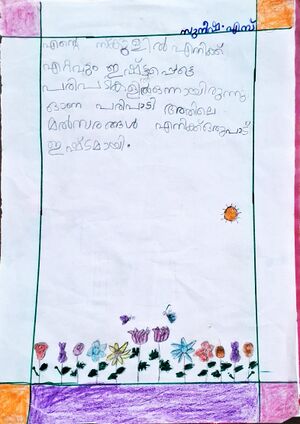 സുനിഷ. എസ്
എന്റെ സ്കൂളിൽ എനിക്ക്
ഏറ്റവും ഇഷ്ട്ടപ്പെട്ട
പരിപടികളിൽഒന്നായിരുന്നു
ഓണ പരിപാടി അതിലെ
മൽസരങ്ങൾ എനിക്ക്ഒരുപാട്
ഇഷ്ടമായി.